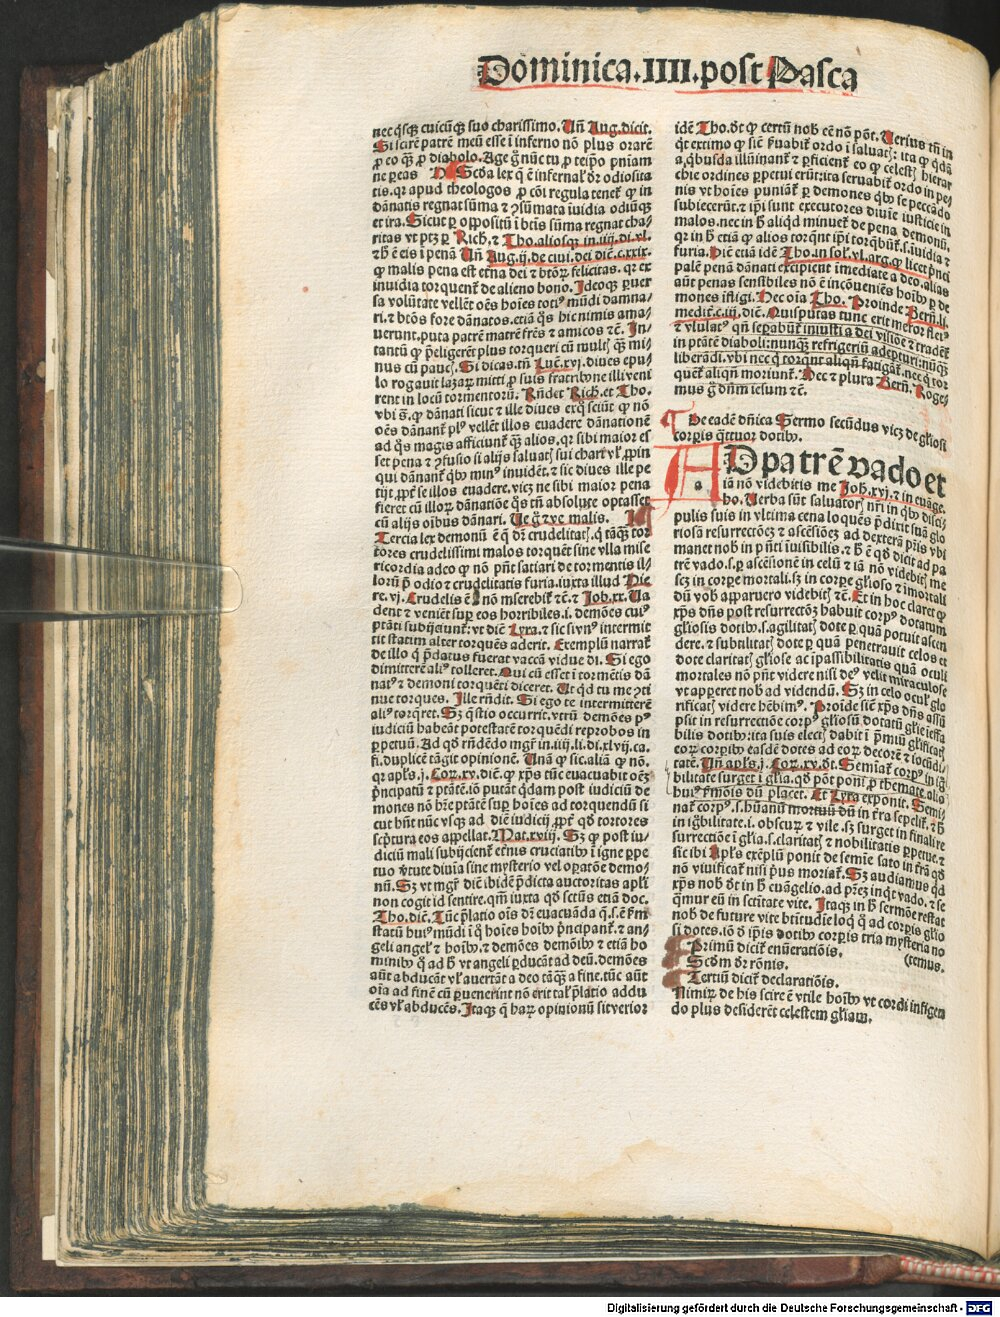 Dominica.IIII.post Pasca
nec qͥsqꝫ cuicūqꝫ suo charissimo. Uñ Aug.dicit.
Si scirē patrē meū esse ī inferno nō plus orarē
ꝓ eo qꝫ ꝓ diabolo. Age gͦ nūc tu ꝓ teipͦo pniam
ne pereas Scda lex qͥ ē infernal' dr̄ odiosita
tis.qꝛ apud theologos ꝓ cōi regula tenet̄ ꝙ in
dānatis regnat sūma ⁊ ꝯsūmata iuidia odiūqꝫ
et ira. Sicut ꝑ oppositū ī btīs sūma regnat cha
ritas vt ptꝫ ꝑ Rich.⁊ Tho.aliosqꝫ in.iiij.di.vl.
⁊ h̄ ē eis ī penā Uñ Aug.ij.de ciui.dei dic̄.c.xxix.
ꝙ malis pena est etna dei ⁊ btōꝝ felicitas.qꝛ ex
inuidia torquent̄ de alieno bono. Ideoqꝫ ꝑuer
sa volūtate vellēt oēs hoīes totiꝰ mūdi damna
ri.⁊ btōs fore dānatos.etiā qͦs hic nimis ama
uerunt.puta patrē matrē frēs ⁊ amicos ⁊c̄. In
tantū ꝙ p̄eligerēt plus torqueri cū multꝭ qꝫ mi
nus cū paucꝭ. Si dicas.tn̄ Luc̄.xvj.diues epu
lo rogauit lazarꝫ mitti ꝓ suis fratribꝰ ne illi veni
rent in locū tormentorū. Rn̄det Rich.et Tho.
vbi s̄. ꝙ dānati sicut ⁊ ille diues etqꝫ sciūt ꝙ nō
oēs dānant̄ plꝰ vellēt illos euadere dānationē
ad qͦs magis afficiunt̄ qꝫ alios.qꝛ sibi maior es
set pena ⁊ ꝯfusio si alijs saluatꝭ sui chari vl' ꝓpin
qui dānant̄ qͥbꝰ minꝰ inuidēt.⁊ sic diues ille pe
tijt.ꝓpt̄ se illos euadere.vicꝫ ne sibi maior pena
fieret cū illoꝝ dānatiōe qͦs tn̄ absolute optasset
cū alijs oībus dānari. Ue gͦ ⁊ ve malis.
Tercia lex demonū ē qͥ dr̄ crudelitatꝭ.qꝛ tāqꝫ tor
tores crudelissimi malos torquēt sine vlla mise
ricordia adeo ꝙ nō pn̄t satiari de tormentis il-
lorū ꝓ odio ⁊ crudelitatis furia.iuxta illud Hie
re.vj. Crudelis ē ⁊ nō miserebit̄ ⁊c̄.⁊ Job.xx. Ua
dent ⁊ veniēt suꝑ eos horribiles.i.demōes cuiꝰ
ptāti subijciunt̄:vt dic̄ Lyra.⁊ sic si vnꝰ intermit
tit statim alter torquēs aderit. Exemplū narrat̄
de illo qͥ p̄datus fuerat vaccā vidue di. Si ego
dimitterē aliꝰ tolleret. Qui cū esset ī tormētis dā
natꝰ ⁊ demoni torquēti diceret. Ut qͥd tu me ꝯti
nue torques. Ille rn̄dit. Si ego te intermitterē
aliꝰ torqͣret. Sꝫ qͣstio occurrit.vtrū demōes pꝰ
iudiciū habeāt potestatē torquēdi reprobos in
ꝑpetuū. Ad qͦd rn̄dēdo mgr̄ in.iiij.li.di.xlvij.ca.
fi.duplicē tāgit opinionē. Unā ꝙ sic.aliā ꝙ nō.
qꝛ apl's.j. Coꝝ.xv.dic̄.ꝙ xp̄s tūc euacuabit oēs
p̄ncipatū ⁊ ptātē.iō putāt qͥdam post iudiciū de
mones nō hr̄e ptātē suꝑ hoīes ad torquendū si
cut hn̄t nūc vsqꝫ ad diē iudicij ꝓpt̄ qͦd tortores
scptura eos appellat. Mat.xviij. Sꝫ ꝙ post iu-
diciū mali subijcient̄ et̄nis cruciatibꝰ ī igne ꝑpe
tuo v̄tute diuīa siue mysterio vel oꝑatōe demo-
nū. Sꝫ vt mgr̄ dic̄ ibidē p̄dicta auctoritas apl'i
non cogit id sentire.qm̄ iuxta qͦd sctūs etiā doc.
Tho.dic̄. Tūc p̄latio oīs dr̄ euacuāda qͥ.s.ē ẜm
statū huiꝰ mūdi ī qͦ hoīes hoībꝰ p̄ncipant̄.⁊ an-
geli angel' ⁊ hoībꝰ.⁊ demōes demōibꝰ ⁊ etiā ho
minibꝰ qͥ ad h̄ vt angeli ꝑducāt ad deū.demōes
aūt abducāt vl' auertāt a deo tāqꝫ a fine.tūc aūt
oīa ad finē cū ꝑuenerint nō erit tal' p̄latio addu
cēs vl' abducēs. Itaqꝫ qͥ haꝝ opinionū sit verior
idē Tho.dt ꝙ certū nob ēē nō pōt. Uerius tn̄ in
qͥt extimo ꝙ si ẜuabit̄ ordo ī saluatꝭ:ita ꝙ qͥdā
a qͥbusda illūinant̄ ⁊ ꝑficient̄ eo ꝙ celestꝭ hierar
chie ordines ꝑpetui erūt:ita seruabit̄ ordo in pe
nis vt hoīes puniāt̄ ꝑ demones qͥbꝰ se peccādo
subiecerūt.⁊ ipͥi sunt executores diuine iusticie in
malos.nec in h̄ aliqͥd minuet̄ de pena demonū.
qꝛ in h̄ etiā ꝙ alios torqͥnt ipͥi torqͥbūt̄.s.iuidia ⁊
furia. Dic̄ etiā idē Tho.in sol.vl.arg.ꝙ licet p̄nci
palē penā dānati excipient īmediate a deo.alias
aūt penas sensibiles nō ē incōueniēs hoībꝰ ꝑ de
mones ifligi. Hec oīa Tho. Proinde Bern̄.li.
medit̄.c.iij.dic̄. Quisputas tunc erit meror flet'
⁊ vlulatꝰ qn̄ seꝑabūt̄ iniusti a dei visiōe ⁊ tradēt̄
in ptātē diaboli:nunqꝫ refrigeriū adepturi:nūqꝫ
liberādi.vbi nec qͥ torqūt aliqn̄ fatigāt̄.nec qͥ tor
quēt̄ aliqn̄ moriunt̄. Hec ⁊ plura Bern̄. Roge
mus gͦ dn̄m iesum ⁊c̄.
De eadē dn̄ica Sermo secūdus vicꝫ de gl'iosi
corꝑis qͣttuor dotibꝰ.
AD patrē vado et
a
iā nō videbitis me Joh.xvj.⁊ in euāge.
ho. Uerba sūt saluatorꝭ nr̄i in qͥbꝰ disci
pulis suis in vltima cena loquēs p̄dixit suā glo
riosā resurrectōeꝫ ⁊ ascēsiōeꝫ ad dexterā pr̄is vbi
manet nob in pn̄ti īuisibilis.⁊ h̄ ē qͦd dicit ad pa
trē vado.s.ꝑ ascēsionē in celū ⁊ iā nō videbitꝭ me
scꝫ in corꝑe mortali.sꝫ in corꝑe gl'ioso ⁊ imortali
dū vob apparuero videbitꝭ ⁊c̄. Et in hoc claret ꝙ
xp̄s dn̄s post resurrectōꝫ habuit corpꝰ dotatum
gl'iosis dotibꝰ.s.agilitatꝭ dote ꝑ quā potuit ascen
dere.⁊ subtilitatꝭ dote ꝑ quā penetrauit celos et
dote claritatꝭ gl'iose ac īpassibilitatis quā oculi
mortales nō pn̄t videre nisi deꝰ velit miraculose
vt apꝑeret nob ad videndū. Sꝫ in celo oculꝭ glo
rificatꝭ videre hēbimꝰ. Proīde sic̄ xp̄s dn̄s assū
psit in resurrectiōe corpꝰ gl'iosū dotatū gl'ie ieffa
bilis dotibꝰ:ita suis electꝭ dabit ī p̄miū gl'ificatꝭ
coꝝ corꝑibꝰ easdē dotes ad eoꝝ decorē ⁊ iocūdi
tatē. Uñ apl's.j. Coꝝ.xv.dt. Semiat̄ corpꝰ in iḡ
bilitate surget ī gl'ia.qͦd pōt poni ꝓ themate alia
huiꝰ ẜmōis dū placet. Et Lyra exponit. Semi
nat̄ corpꝰ.s.hūanū mortuū dū in t̄ra sepelit̄.⁊ h̄
in igͦbilitate.i.obscuꝝ ⁊ vile.sꝫ surget in finali re
surrectiōe ī gl'ia.s.claritatꝭ ⁊ nobilitatis ꝑpetue.⁊
sic̄ ibi Apl's exēplū ponit de semīe sato in t̄ra qͦd
nō viuificat̄ nisi pͥus moriat̄. Sꝫ audiamus qͥd
xp̄s nob dt in h̄ euāgelio.ad pr̄eꝫ inqͥt vado.⁊ se
qͣmur eū in sctitate vite. Itaqꝫ in h̄ sermōe restat
nob de future vite btitudie loqͥ qͥ ad corꝑis gl'io
si dotes.iō dͦ ipͥis dotibꝰ corꝑis tria mysteria no
Primū dicit̄ enūeratiōis. (temus.
Scdm dr̄ rōnis.
Tertiū dicit̄ declaratiōis.
Nimiꝝ de his scire ē vtile hoībꝰ vt cordi infigen
do plus desiderēt celestem gl'iam.
Digitalisierung gefördert durch die Deutsche Forschungsgemeinschaft - DFG